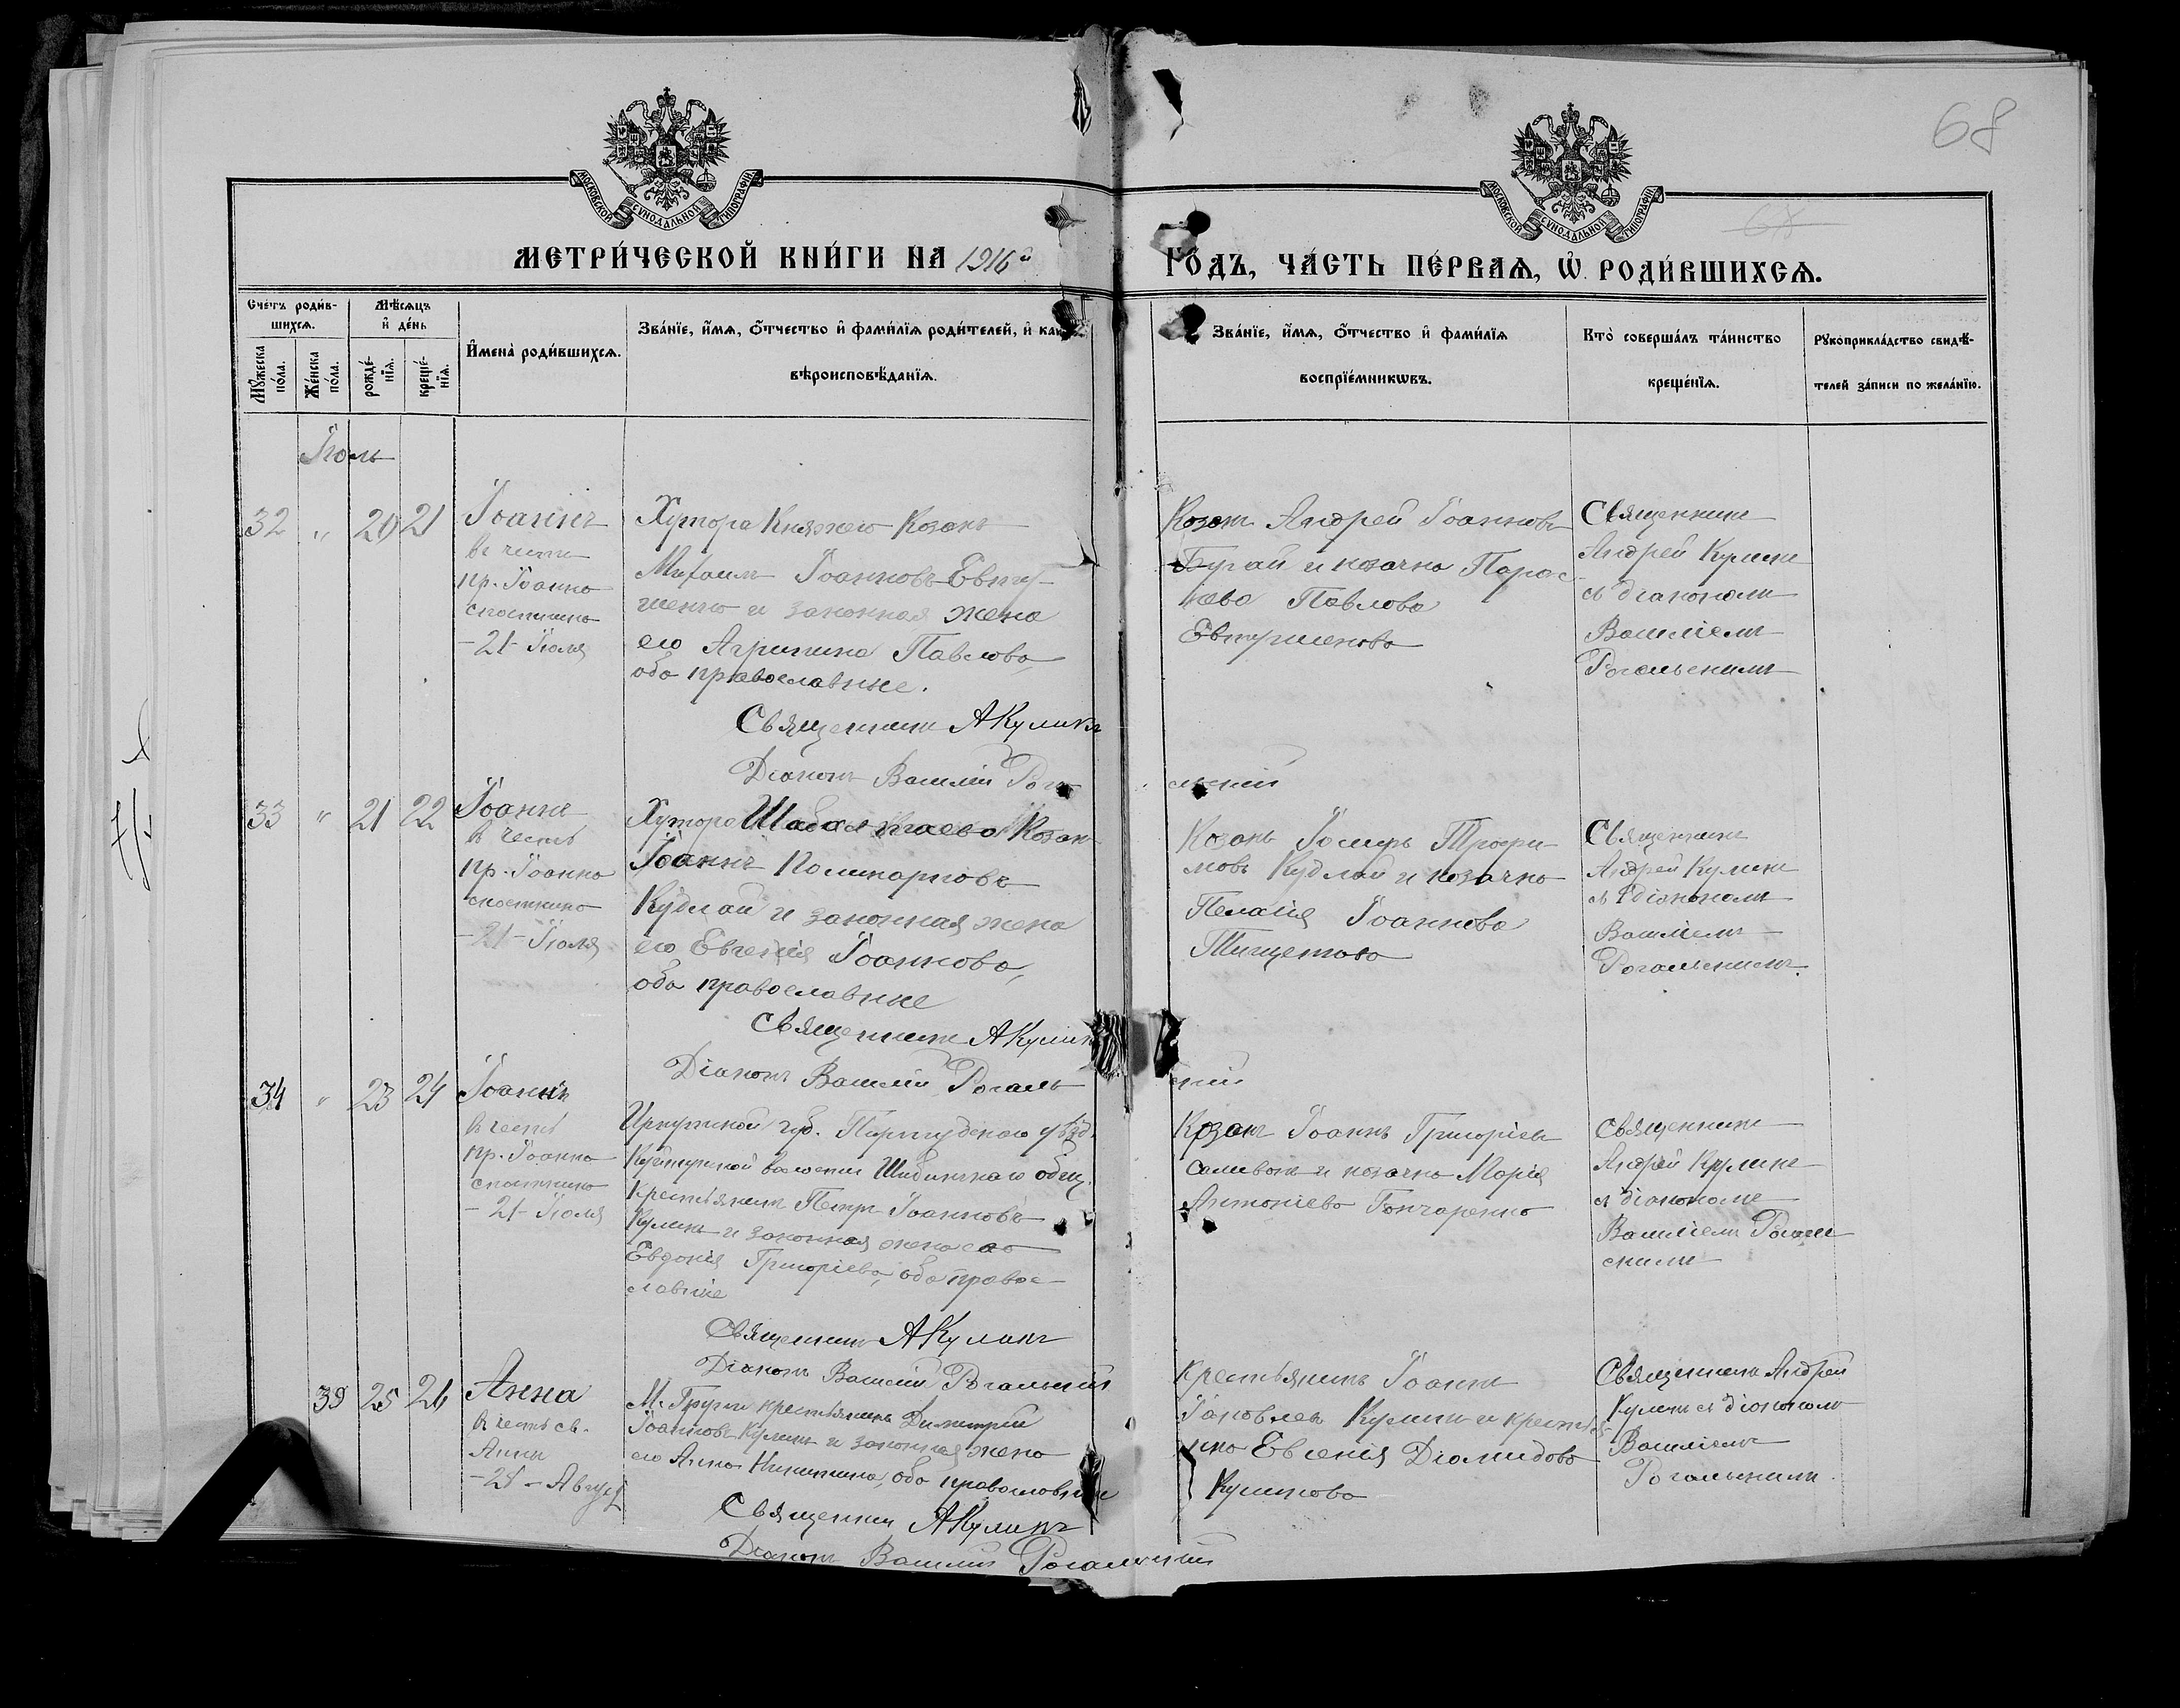 68
МОСКОВСКОЙ СѴНОДАЛЬНОЙ ТИПОГРАФІИ
МОСКОВСКОЙ СѴНОДАЛЬНОЙ ТИПОГРАФІИ
МЕТРИ́ЧЕСКОЙ КНИ́ГИ НА 1916й
ГО́ДЪ, ЧА́СТЬ ПЕ́РВАѦ, Ѡ҆ РОДИ́ВШИХСѦ.
Сче́тъ роди́в-
шихсѧ.
Мѣ́сѧцъ
и҆ де́нь
Мꙋ́жеска по́ла.
Же́нска по́ла.
рожде́-
нїѧ.
креще́-
нїѧ.
И҆мена̀ роди́вшихсѧ.
Зва́нїе, и҆́мѧ, ѻ҆́тчество и҆ фами́лїѧ роди́телей, и҆ как
вѣроисповѣ́данїѧ.
Зва́нїе, и҆́мѧ, ѻ҆́тчество и҆ фами́лїѧ
воспрїе́мникѡвъ.
Кто̀ соверша́лъ та́инство
креще́нїѧ.
Рꙋкоприкла́дство свидѣ́-
телей за́писи по жела́нїю.
Іюль
32 " 20 21
Іоаннъ
въ честь
пр. Іоанна
спостника
-21- Іюля
Хутора Княжего Козакъ
Михаилъ Іоанновъ Евту-
шенко и законная жена
его Агрипина Павлова,
оба православные.
Священникъ А Куликъ
Діаконъ Василій Рога
льскій
Козакъ Андрей Іоанновъ
Бугай и козачка Парас-
кева Павлова
Евтушенкова
Священникъ
Андрей Куликъ
съ діакономъ
Василіемъ
Рогальскимъ
33 " 21 22
Іоаннъ
въ честь
пр. Іоанна
спостника
-21- Іюля
Хутора Козакъ
Іоаннъ Поликарповъ
Кудлай и законная жена
его Евгенія Іоаннова,
оба православные
Священникъ А Куликъ
Діаконъ Василій Рогаль
скій
Козакъ Іосифъ Трофи-
мовъ Кудлай и козачка
Пелагія Іоаннова
Священникъ
Андрей Куликъ
съ діакономъ
Василіемъ
Рогальскимъ.
34 " 23 24
Іоаннъ
въ честь
пр. Іоанна
спостника
-21- Іюля
Иркутской губ. уѣзд.
Куйтунской волости общ.
Крестьянинъ Петръ Іоанновъ
Куликъ и законная жена его
Евдокія Григоріева, оба правос-
лавные
Священникъ А Куликъ
Діаконъ Василій Рогальскій
Козакъ Іоаннъ Григоріевъ
Саливонъ и козачка Марія
Антоніева Гончаренко
Священникъ
Андрей Куликъ
съ діакономъ
Василіемъ Рогаль
скимъ
39 25 26
Анна
въ честь св.
Анны
-25- Август
М. Груни крестьянинъ Димитрій
Іоанновъ Куликъ и законная жена
его Анна Никитина, оба православные
Священникъ А Куликъ
Діаконъ Василій Рогальскій
Крестьянинъ Іоаннъ
Іаковлевъ Куликъ и крестья-
нка Евгенія Діомидова
Куликова
Священникъ Андрей
Куликъ съ діакономъ
Василіемъ
Рогальскимъ.